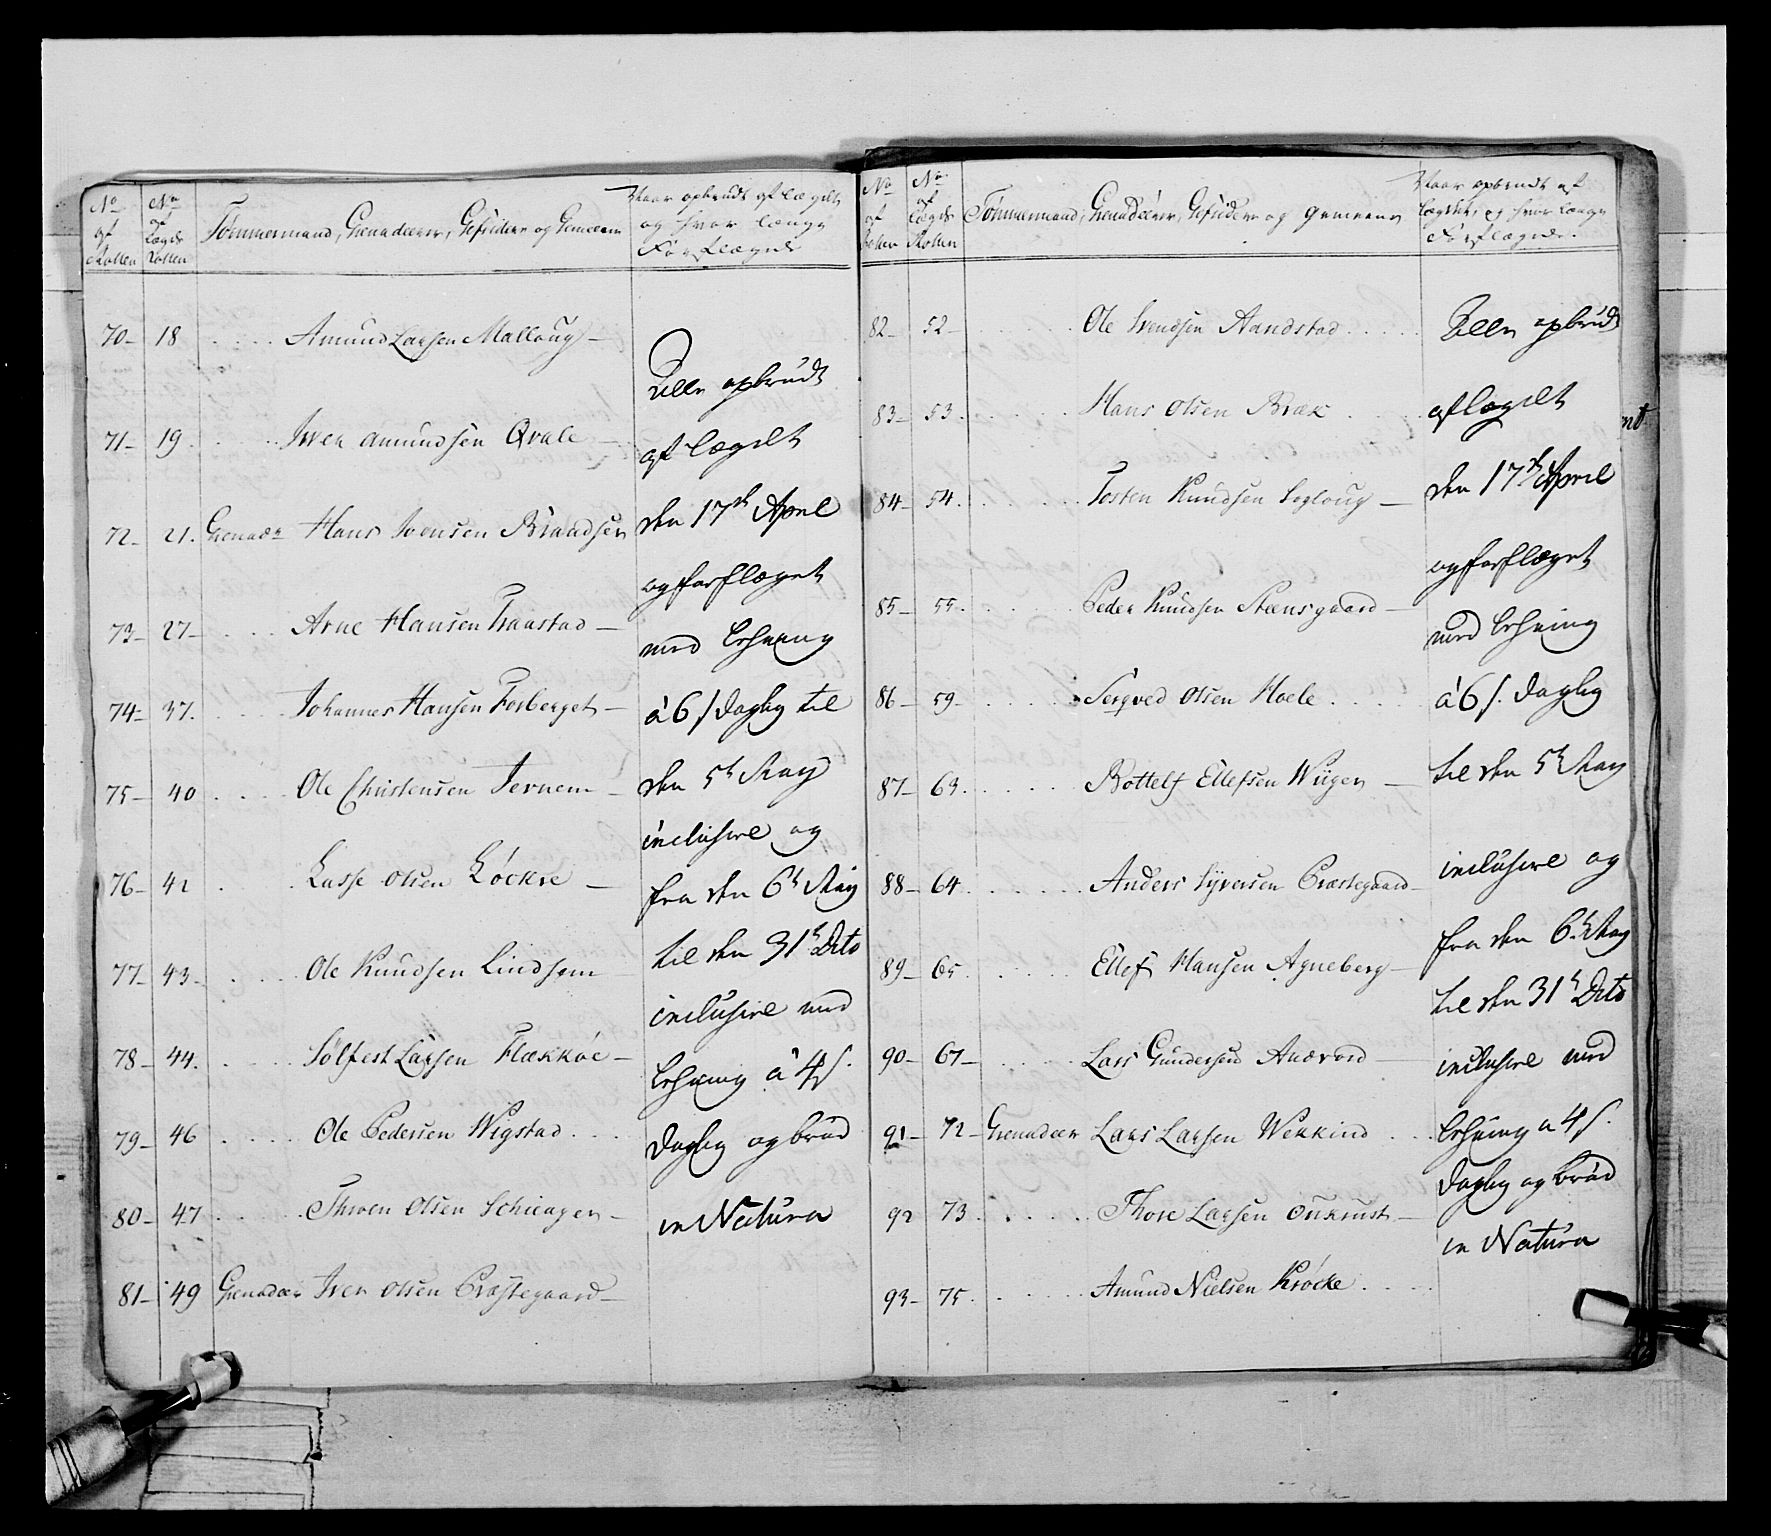 No af Rollen | No af Lægds Rollen | Tømmermænd, Grenadeerer, Gefridere og Gemeene | Naar opbrudt af Lægdet og hvor længe Forflægnde
70 - 18 .... Amund Larsen Mallaug -
71 - 19 .... Iver Amundsen Qvale -
72 - 21. Grenadr Hans Svensen Brandsen
73 - 27 .... Arne Hansen Traastad -
74 - 37. .... Johannes Hansen Forberget -
75 - 40 .... Ole Christensen Jernem -
76 - 42 .... Lasse Olsen Løckre -
77 - 43 - .... Ole Knudsen Lindsem
78 - 44. .... Sølfest Larsen Flækkøe -
79 - 46 .... Ole Pedersen Wigstad ....
80 - 47 .... Throen Olsen Schieager -
81 - 49 Grenadeer Iver Olsen Præstegaard -
Alle opbrudt
af lægdet
den 17de April
og forflæget
med Lehning
à 6 s daglig til
den 5te May
inclusive og
fra den 6te May
til den 31te Dito
inclusive med
Lehning à 4 s.
daglig og brød
in Natura
No af Rollen | No af Lægds Rollen | Tømmermænd, Grenadeerer, Gefridere og Gemeene | Naar opbrudt af Lægdet, og hvor længe Forflægnde.
82 - 52 - .... Ole Svendsen Aandstad ....
83 - 53. .... Hans Olsen Bræk ....
84 - 54. .... Josten Knudsen Sogloug -
85 - 55. .... Peder Knudsen Steensgaard -
86 - 59 - .... Sergved Olsen Hoele ....
87 - 63. .... Bottelf Ellefsen Wiigen -
88 - 64 .... Anders Syversen Præstegaard -
89 - 65 .... Ellef Hansen Agneberg -
90 - 67 - .... Lars Gundersen Andvord -
91 - 72 - Grenadeer Lars Larsen Wekkind ....
92 73 .... Thore Larsen Oukrust -
93 - 75. .... Amund Nielsen Krøcke ....
Alle opbrudt
af lægdet
den 17de April
og forflæget
med Lehning
à 6 s. daglig
til den 5te May
inclusive og
fra den 6te May
til den 31te Dito
inclusive med
Lehning a 4 s.
daglig og brød
in Natura